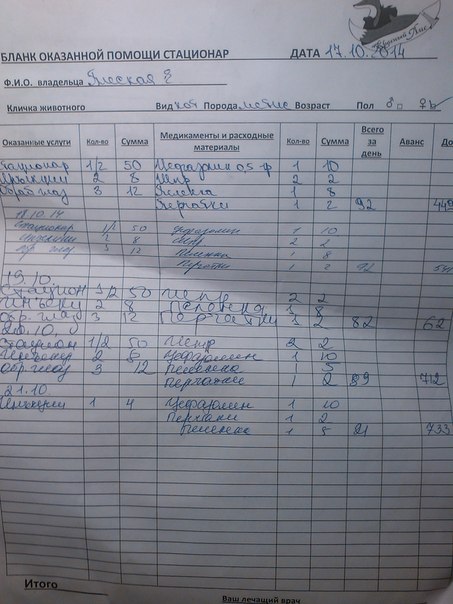 БЛАНК ОКАЗАННОЙ ПОМОЩИ СТАЦИОНАР ДАТА 17.10.2014
Ф.И.О. владельца
Кличка животного Вид кот Порода метис Возраст Пол ♂ ♀
Оказанные услуги Кол-во Сумма Медикаменты и расходные материалы Кол-во Сумма Всего за день Аванс До
стационар 1/2 50 Цефазолин 0,5 1 10
инъекции 2 8 шпр 2 2
обр глаз 3 12 пеленка 1 8
перчатки 1 2 92 449
18.10.14
стационар 1/2 50 1 10
инъекции 2 8 2 2
обр глаз 3 12 пеленка 1 8
перчатки 1 2 92
19.10.
Стацион 1/2 50 шпр 2 2
инъекц 2 8 пеленка 1 8
обр. глаз 3 12 Перчатки 1 2 82 62
20.10.
Стацион 1/2 50 шпр 2 2
2 8 Цефазолин 1 10
обр глаз 3 12 пеленка 1 5
перчатки 1 2 89 712
21.10
инъекции 1 4 Цефазолин 1 10
перчатки 1 2
пеленка 1 5 21 733
Итого
Ваш лечащий врач